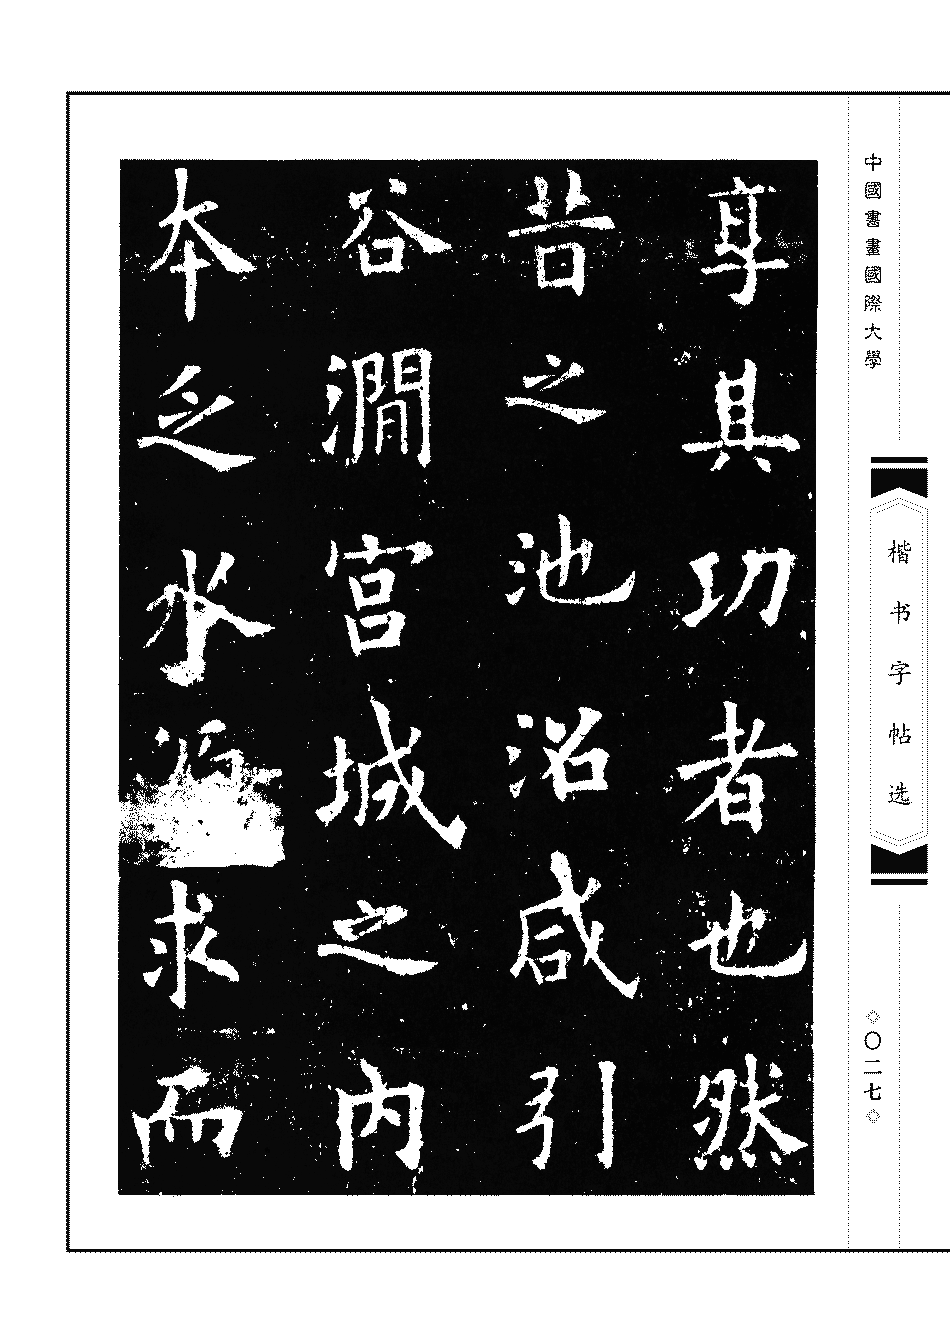 中國書畫國際大學
楷书字帖选
◇〇二七◇
享其功者也然
昔之池沼咸引
谷澗宮城之内
本乏水源求而